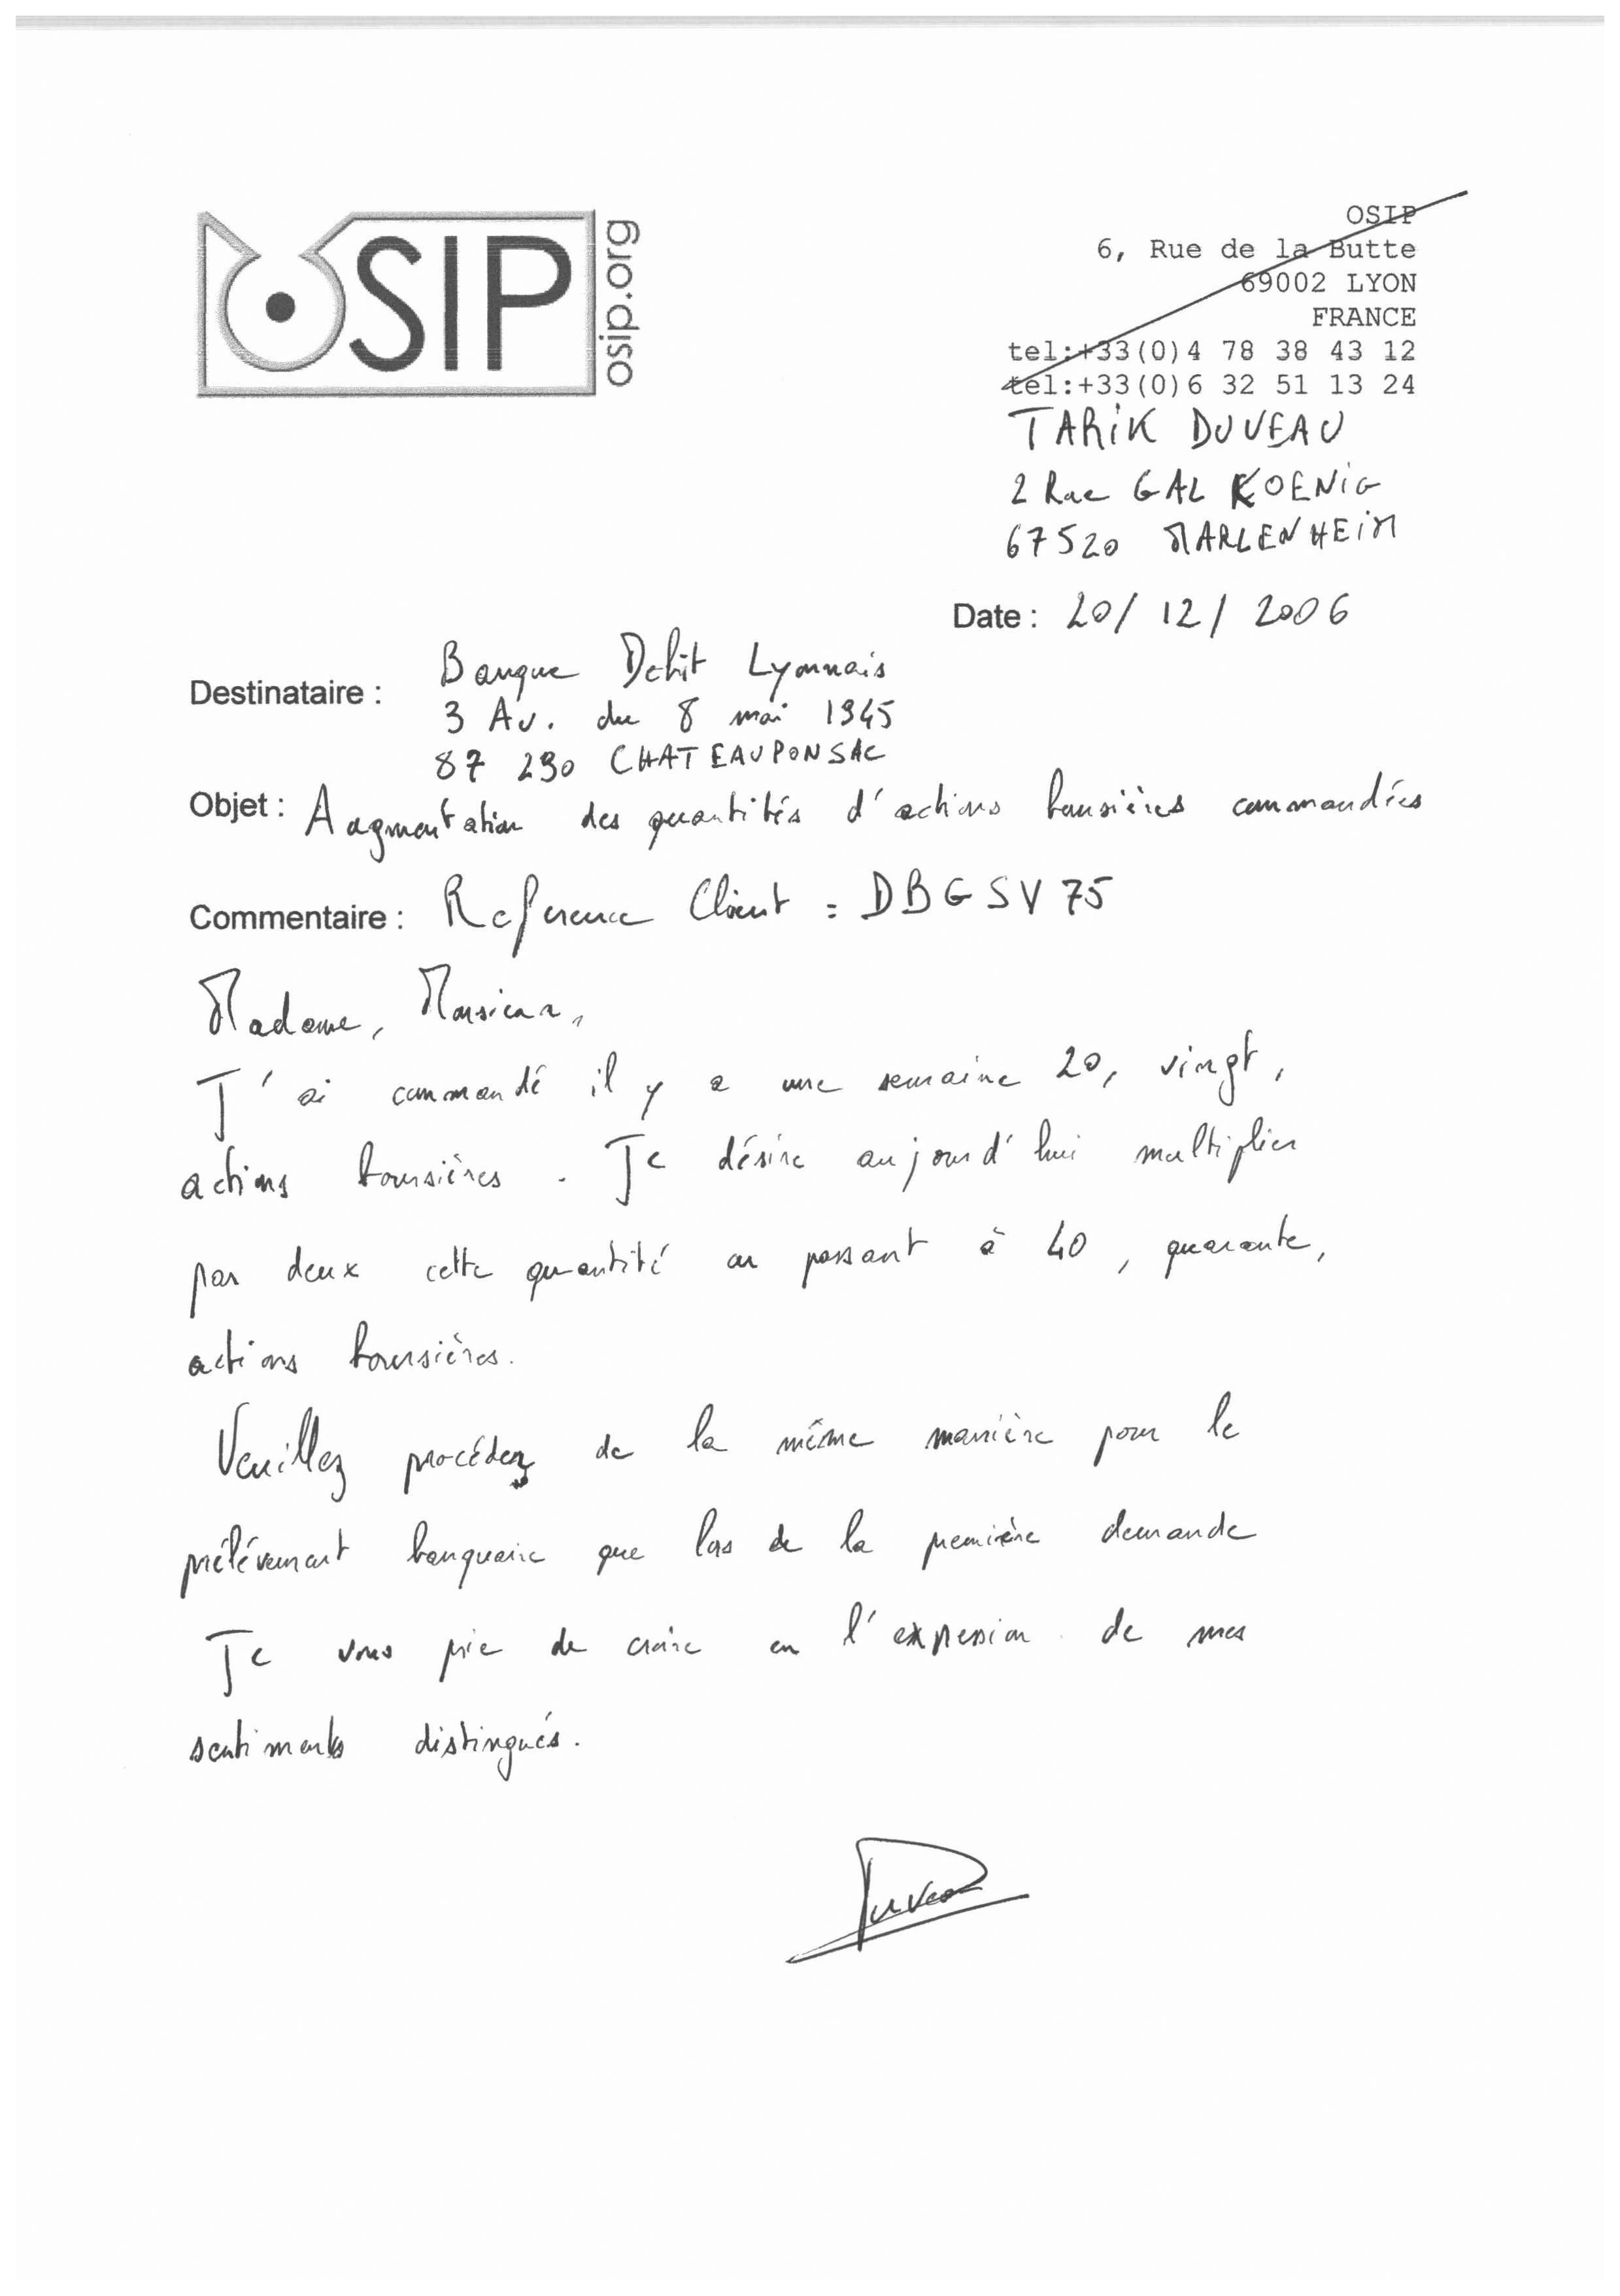 OSIP
osip.org
OSIP
6, Rue de la Butte
69002 LYON
FRANCE
tel:+33(0)4 78 38 43 12
tel:+33(0)6 32 51 13 24
TARIK DUVEAU
2 Rue GAL KOENIG
67520 MARLENHEIM
Date : 20/12/2006
Destinataire : Banque Debit Lyonnais
3 Av. du 8 mai 1945
87 290 CHATEAUPONSAC
Objet : Augmentation des quantités d'actions boursières commandées
Commentaire : Reference Client : DBGSV75
Madame, Monsieur,
J'ai commandé il y a une semaine 20, vingt,
actions boursières. Je désire aujourd'hui multiplier
par deux cette quantité en passant à 40, quarante,
actions boursières.
Veuillez procéder de la même manière pour le
prélévement banquaire que lors de la première demande
Je vous prie de croire en l'expression de mes
sentiments distingués.
Duveau